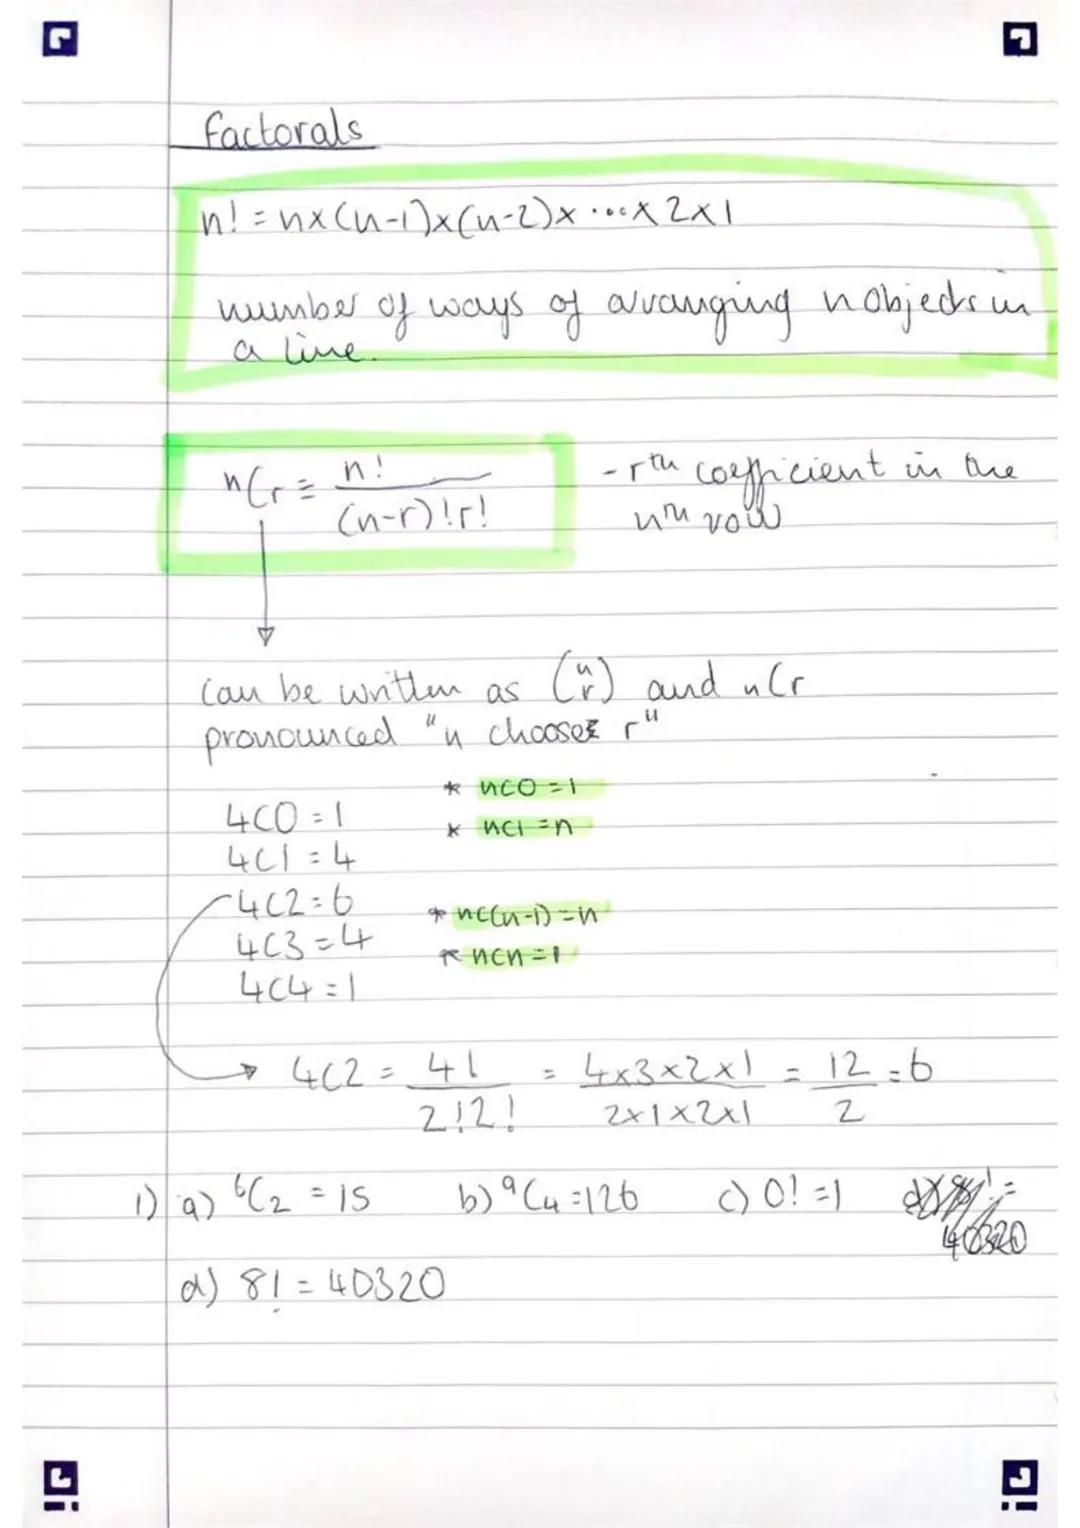 factorals
n! = n×(n-1)×(n-2)× ....× 2×1
number of ways of arranging n objects in
a line.
ⁿCr = n! / (n-r)!r!
- rᵗʰ coefficient in the
nᵗʰ row
can be written as (n r) and nCr
pronounced "n choose r"
* nC0 = 1
4C0 = 1
* nC1 = n
4C1 = 4
4C2 = 6
* nC(n-1) = n
4C3 = 4
* nCn = 1
4C4 = 1
4C2 = 4! / 2!2! = 4×3×2×1 / 2×1×2×1 = 12 / 2 = 6
1) a) ⁶C₂ = 15 b) ⁹C₄ = 126 c) 0! = 1 d) 8! =
40320
d) 8! = 40320